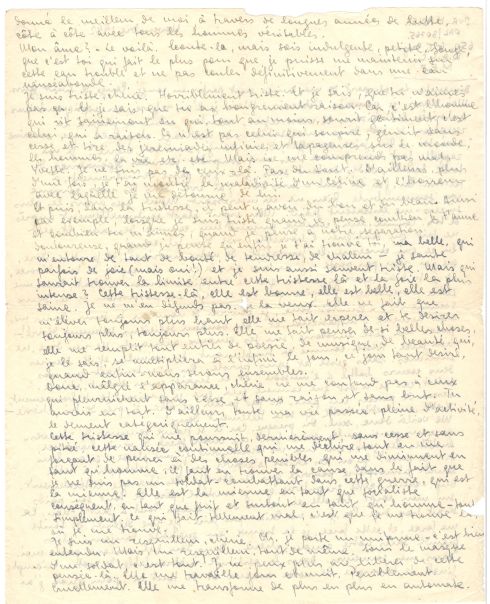 donné le meilleur de moi à travers de longues années de lutte,
côte à côte avec tous les hommes véritables.
Mon âme? - Le voilà. Ecoute-la, mais sois indulgente, petite. Songe
que c'est toi qui fait le plus pour que je puisse me maintenir sur
cette eau trouble et ne pas couler définitivement dans une eau
Je suis triste, chérie. Horriblement triste. Et je sais, que tu n'aimes
pas ça. Et je sais, que tu as bougrement raison. Car c'est l'homme
qui rit sainement ou qui, tout au moins, sourit gentiment, c'est
celui, qui a raison. Ce n'est pas celui qui soupire, gémit sans
cesse et tire des jérémiades infinies et tapageuses sur le monde,
les hommes, la vie etc. etc. Mais ne me comprends pas mal,
Yvette. Je ne suis pas de ceux-là. Pas du tout. D'ailleurs, plus
d'une fois, je t'ai montré la
avec laquelle je me détourne de lui.
Et puis, dans la tristesse, il peut y avoir du bon et du beau. Ainsi
par exemple, lorsque je suis triste quand je pense combien je t'aime
et combien tu m'aimes, quand je pense à notre séparation
douloureuse, quand je pense qu'enfin je t'ai trouvé toi, ma belle, qui
m'entoure de tant de bonté, de tendresse, de chaleur - je saute
parfois de joie (mais oui!) et je suis aussi souvent triste. Mais qui
saurait trouver la limite entre cette tristesse là et la joie la plus
intense? Cette tristesse-là, elle est bonne, elle est belle, elle est
saine. Je ne m'en défends pas. Je la veux. Elle ne fait que
m'élever toujours plus haut, elle me fait espérer et te désirer
toujours plus, toujours plus. Elle me fait penser de si belles choses,
elle me remplit tout entier de poésie, de musique, de beauté qui,
je le sais, se multipliera à l'infini le jour, ce jour tant désiré,
quand enfin nous serons ensembles.
Donc, malgré l'apparence, chérie, ne me confond pas à ceux
qui pleurnichent sans cesse et sans raison, et sans but. Tu
aurais eu tort. D'ailleurs, toute ma vie passée, pleine d'activité,
le dément catégoriquement.
Cette tristesse qui me poursuit, dernièrement, sans cesse et sans
pitié, cette nausée continuelle qui me déchire, tout en me
forçant de penser à des choses pénibles, qui me diminuent en
tant qu'homme, il faut en trouver la cause dans le fait que
je ne suis pas un soldat-combattant dans cette guerre, qui est
la mienne. Elle est la mienne en tant que socialiste
conséquent, en tant que juif et surtout en tant qu'homme - tout
simplement. Ce qui fait tellement mal, c'est que je me trouve là
où je me trouve.
Je suis un resquilleur, chérie. Oh, je porte un uniforme - c'est bien
entendu. Mais, un resquilleur, tout de même. Sous le masque
d'un soldat, c'est tout. Je ne peux plus me libérer de cette
pensée-là. Elle me travaille jour et nuit. Péniblement.
Cruellement. Elle me transforme de plus en plus en automate.